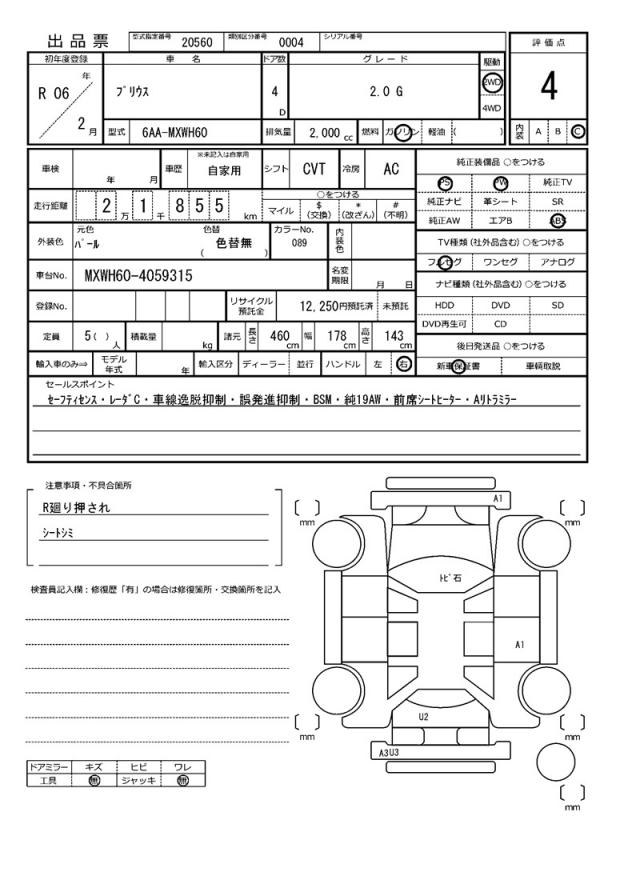 出品票 型式指定番号 20560 類別区分番号 0004 シリアル番号
評価点
4
内装 A B C
初年度登録 車名 ドア数 グレード 駆動
R 06 年 2 月
プリウス 4 D 2.0 G 2WD 4WD
型式 6AA-MXWH60 排気量 2,000 cc 燃料 ガソリン 軽油 ( )
車検 年 月 車歴 ※未記入は自家用 自家用 シフト CVT 冷房 AC
走行距離 2 万 1 千 8 5 5 km
○をつける
マイル $(交換) *(改ざん) #(不明)
外装色 元色 パール 色替 色替無 ( ) カラーNo. 089 内装色
車台No. MXWH60-4059315 名変期限 月 日
登録No. リサイクル預託金 12,250円預託済 未預託
定員 5( )人 積載量 kg 諸元 長さ 460 cm 幅 178 cm 高さ 143 cm
輸入車のみ⇒ モデル年式 年 輸入区分 ディーラー 並行 ハンドル 左 右
純正装備品 ○をつける
PS PW 純正TV
純正ナビ 革シート SR
純正AW エアB ABS
TV種類(社外品含む)○をつける
フルセグ ワンセグ アナログ
ナビ種類(社外品含む)○をつける
HDD DVD SD
DVD再生可 CD
後日発送品 ○をつける
新車保証書 車輌取説
セールスポイント
セーフティセンス・レーダC・車線逸脱抑制・誤発進抑制・BSM・純19AW・前席シートヒーター・Aリトラミラー
注意事項・不具合箇所
R廻り押され
シートシミ
検査員記入欄:修復歴「有」の場合は修復箇所・交換箇所を記入
ドアミラー キズ ヒビ ワレ
工具 無 ジャッキ 無
A1
mm
mm
トビ石
A1
U2
mm
mm
A3U3
mm